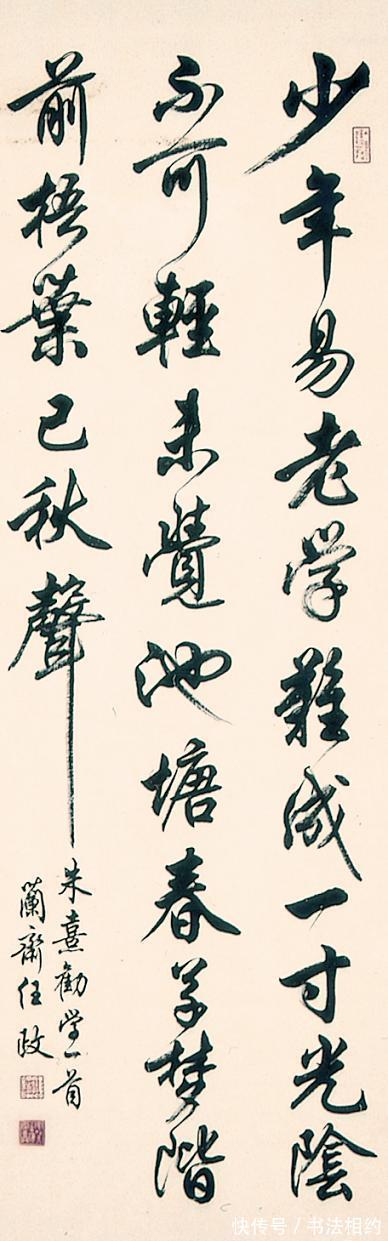 少年易老学難成一寸光陰
不可輕未覺池塘春草梦階
前梧葉已秋聲
朱熹勸学一首
蘭齋任政
快传号/书法相约